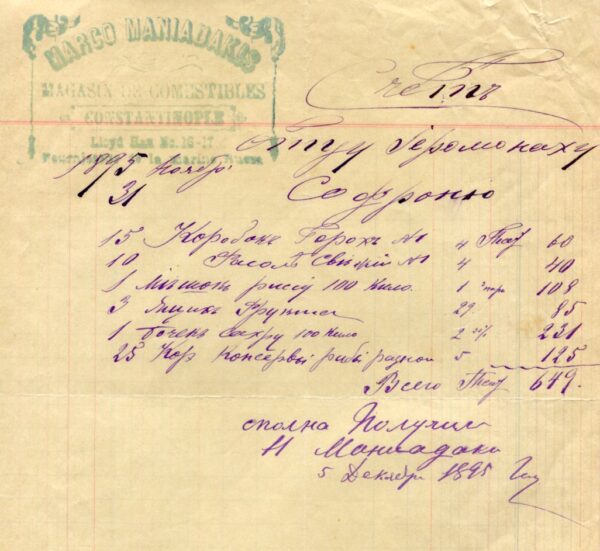 MARCO MANIADAKIS
MAGASIN DE COMESTIBLES
CONSTANTINOPLE
Lloyd Han No. 16-17
Fournisseur de la Marine Russe
Счетъ
Отцу Іеромонаху
1895 Ноябрі
31
Софронію
15 Коробокъ Горохъ №1 4 60
10 Фасолъ №1 4 40
1 Мѣшокъ рису 100 Кило 1 108
3 Ящикъ Фрукта 29 85
1 бочекъ сахру 100 Кило 2 231
25 Кор Консервы рибі разной 5 125
Всего 649.
сполна Получил
Маниадаки
5 Декабрі 1895